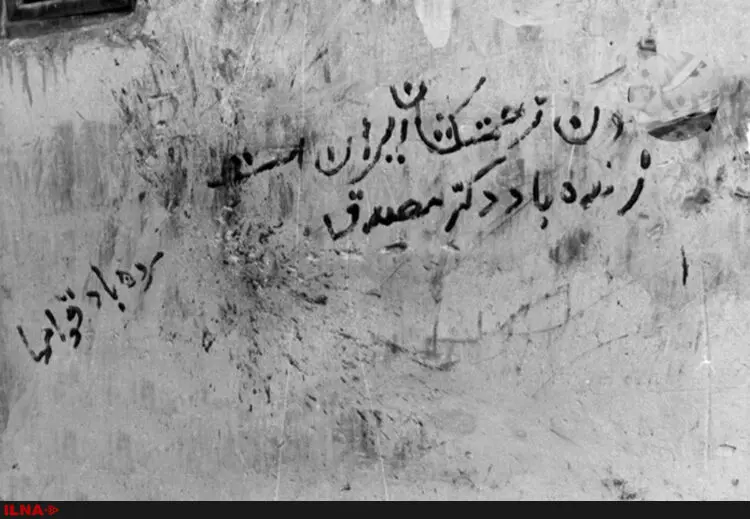 زحمتکشان ایران است
زنده باد دکتر مصدق
مرده باد قوام
ILNA